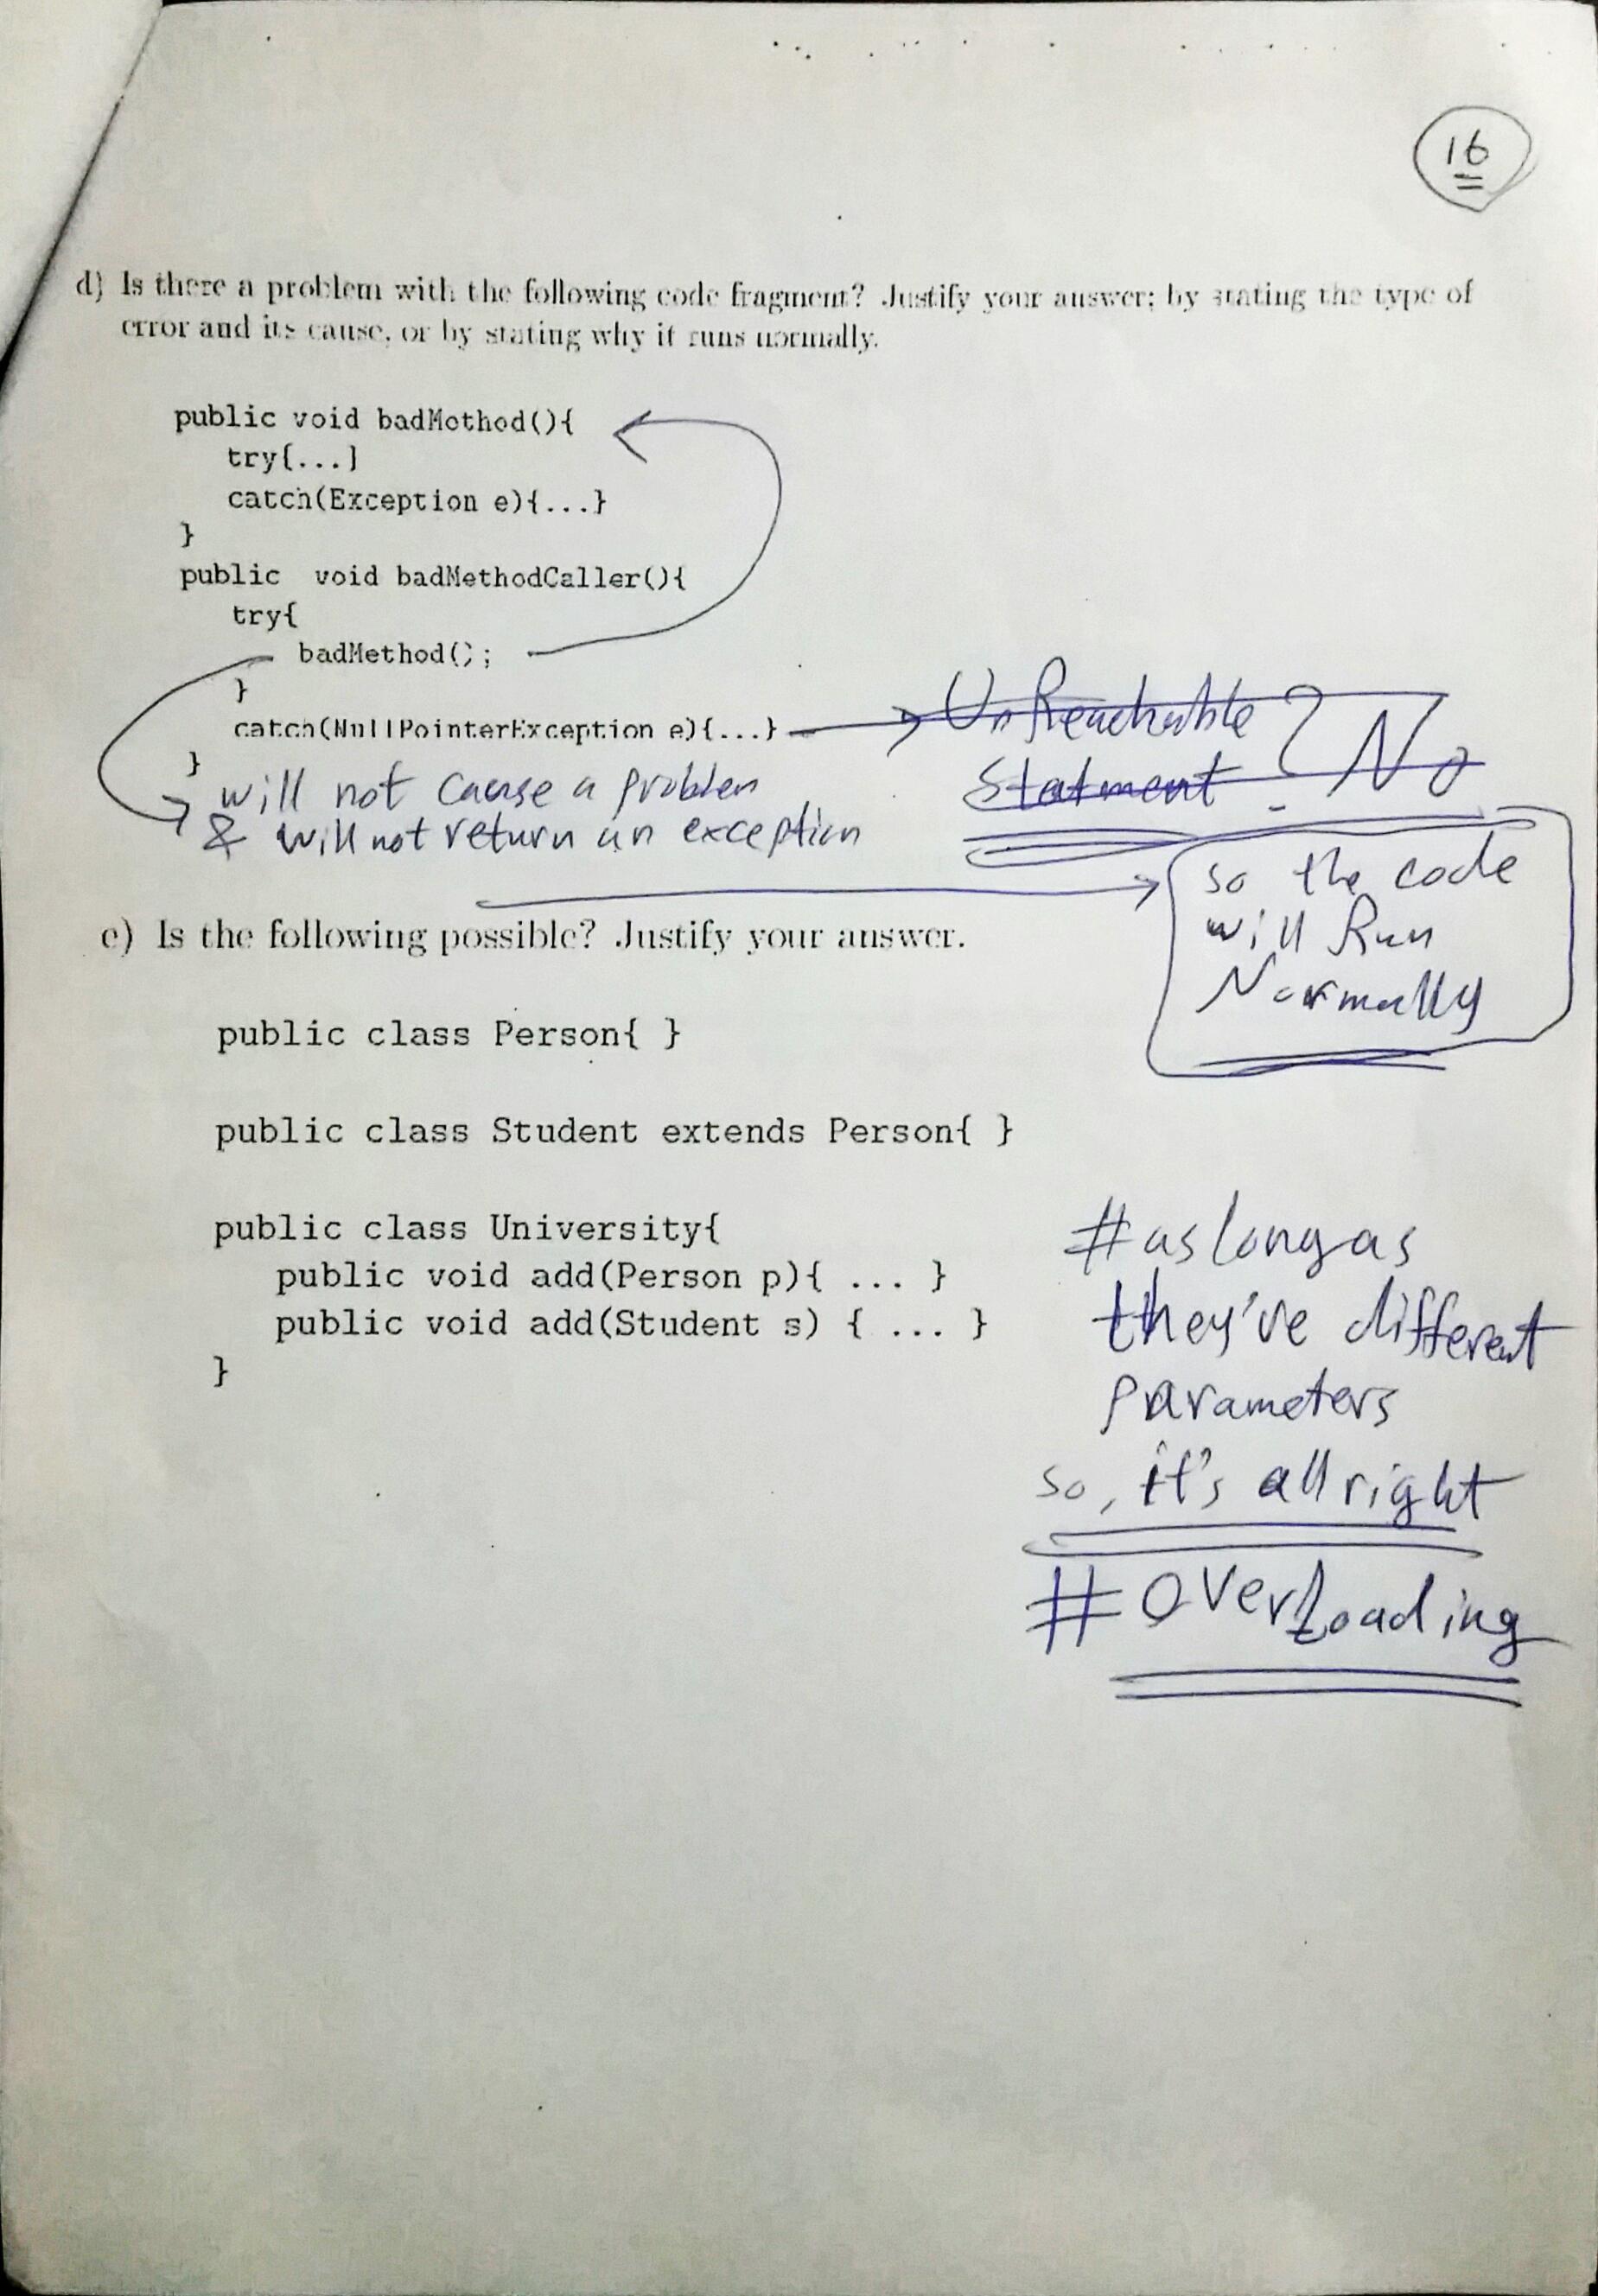 16
d) Is there a problem with the following code fragment? Justify your answer; by stating the type of
error and its cause, or by stating why it runs normally.
public void badMethod(){
try{...}
catch(Exception e){...}
}
public void badMethodCaller(){
try{
badMethod();
}
catch(NullPointerException e){...}
}
UnReachable
Statment ? No
will not cause a problem
& will not return an exception
so the code
will Run
Normally
e) Is the following possible? Justify your answer.
public class Person{ }
public class Student extends Person{ }
public class University{
public void add(Person p){ ... }
public void add(Student s) { ... }
}
# as long as
they've different
parameters
so, it's all right
# OverLoading